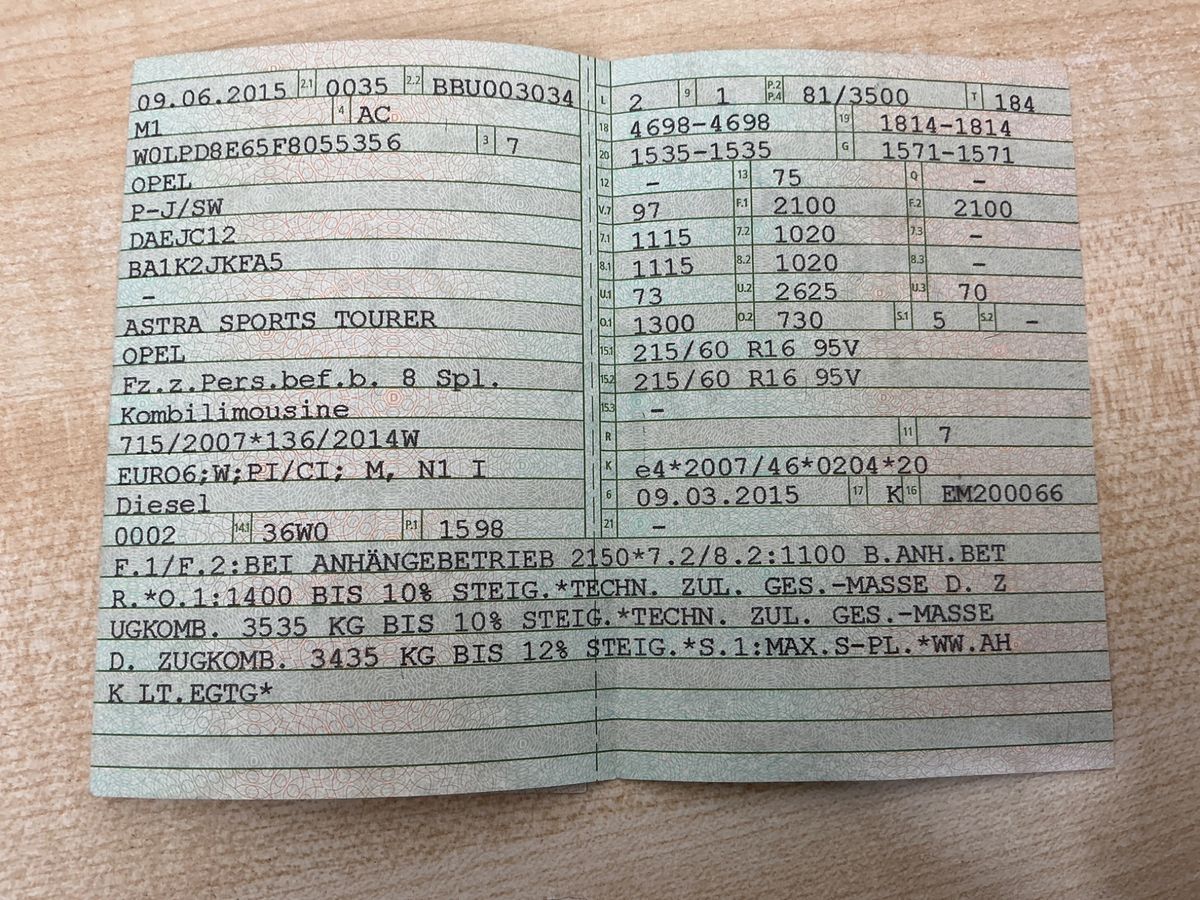 09.06.2015 2.1 0035 2.2 BBU003034
M1 4 AC
W0LPD8E65F8055356 3 7
OPEL
P-J/SW
DAEJC12
BA1K2JKFA5
-
ASTRA SPORTS TOURER
OPEL
Fz.z.Pers.bef.b. 8 Spl.
Kombilimousine
715/2007*136/2014W
EURO6;W;PI/CI; M, N1 I
Diesel
0002 14.1 36W0 P.1 1598
L 2 9 1 P.2 P.4 81/3500 T 184
18 4698-4698 19 1814-1814
20 1535-1535 G 1571-1571
12 - 13 75 Q -
V.7 97 F.1 2100 F.2 2100
7.1 1115 7.2 1020 7.3 -
8.1 1115 8.2 1020 8.3 -
U.1 73 U.2 2625 U.3 70
O.1 1300 O.2 730 S.1 5 S.2 -
15.1 215/60 R16 95V
15.2 215/60 R16 95V
15.3 -
R 11 7
K e4*2007/46*0204*20
6 09.03.2015 17 K 16 EM200066
21 -
F.1/F.2:BEI ANHÄNGEBETRIEB 2150*7.2/8.2:1100 B.ANH.BET
R.*O.1:1400 BIS 10% STEIG.*TECHN. ZUL. GES.-MASSE D. Z
UGKOMB. 3535 KG BIS 10% STEIG.*TECHN. ZUL. GES.-MASSE
D. ZUGKOMB. 3435 KG BIS 12% STEIG.*S.1:MAX.S-PL.*WW.AH
K LT.EGTG*